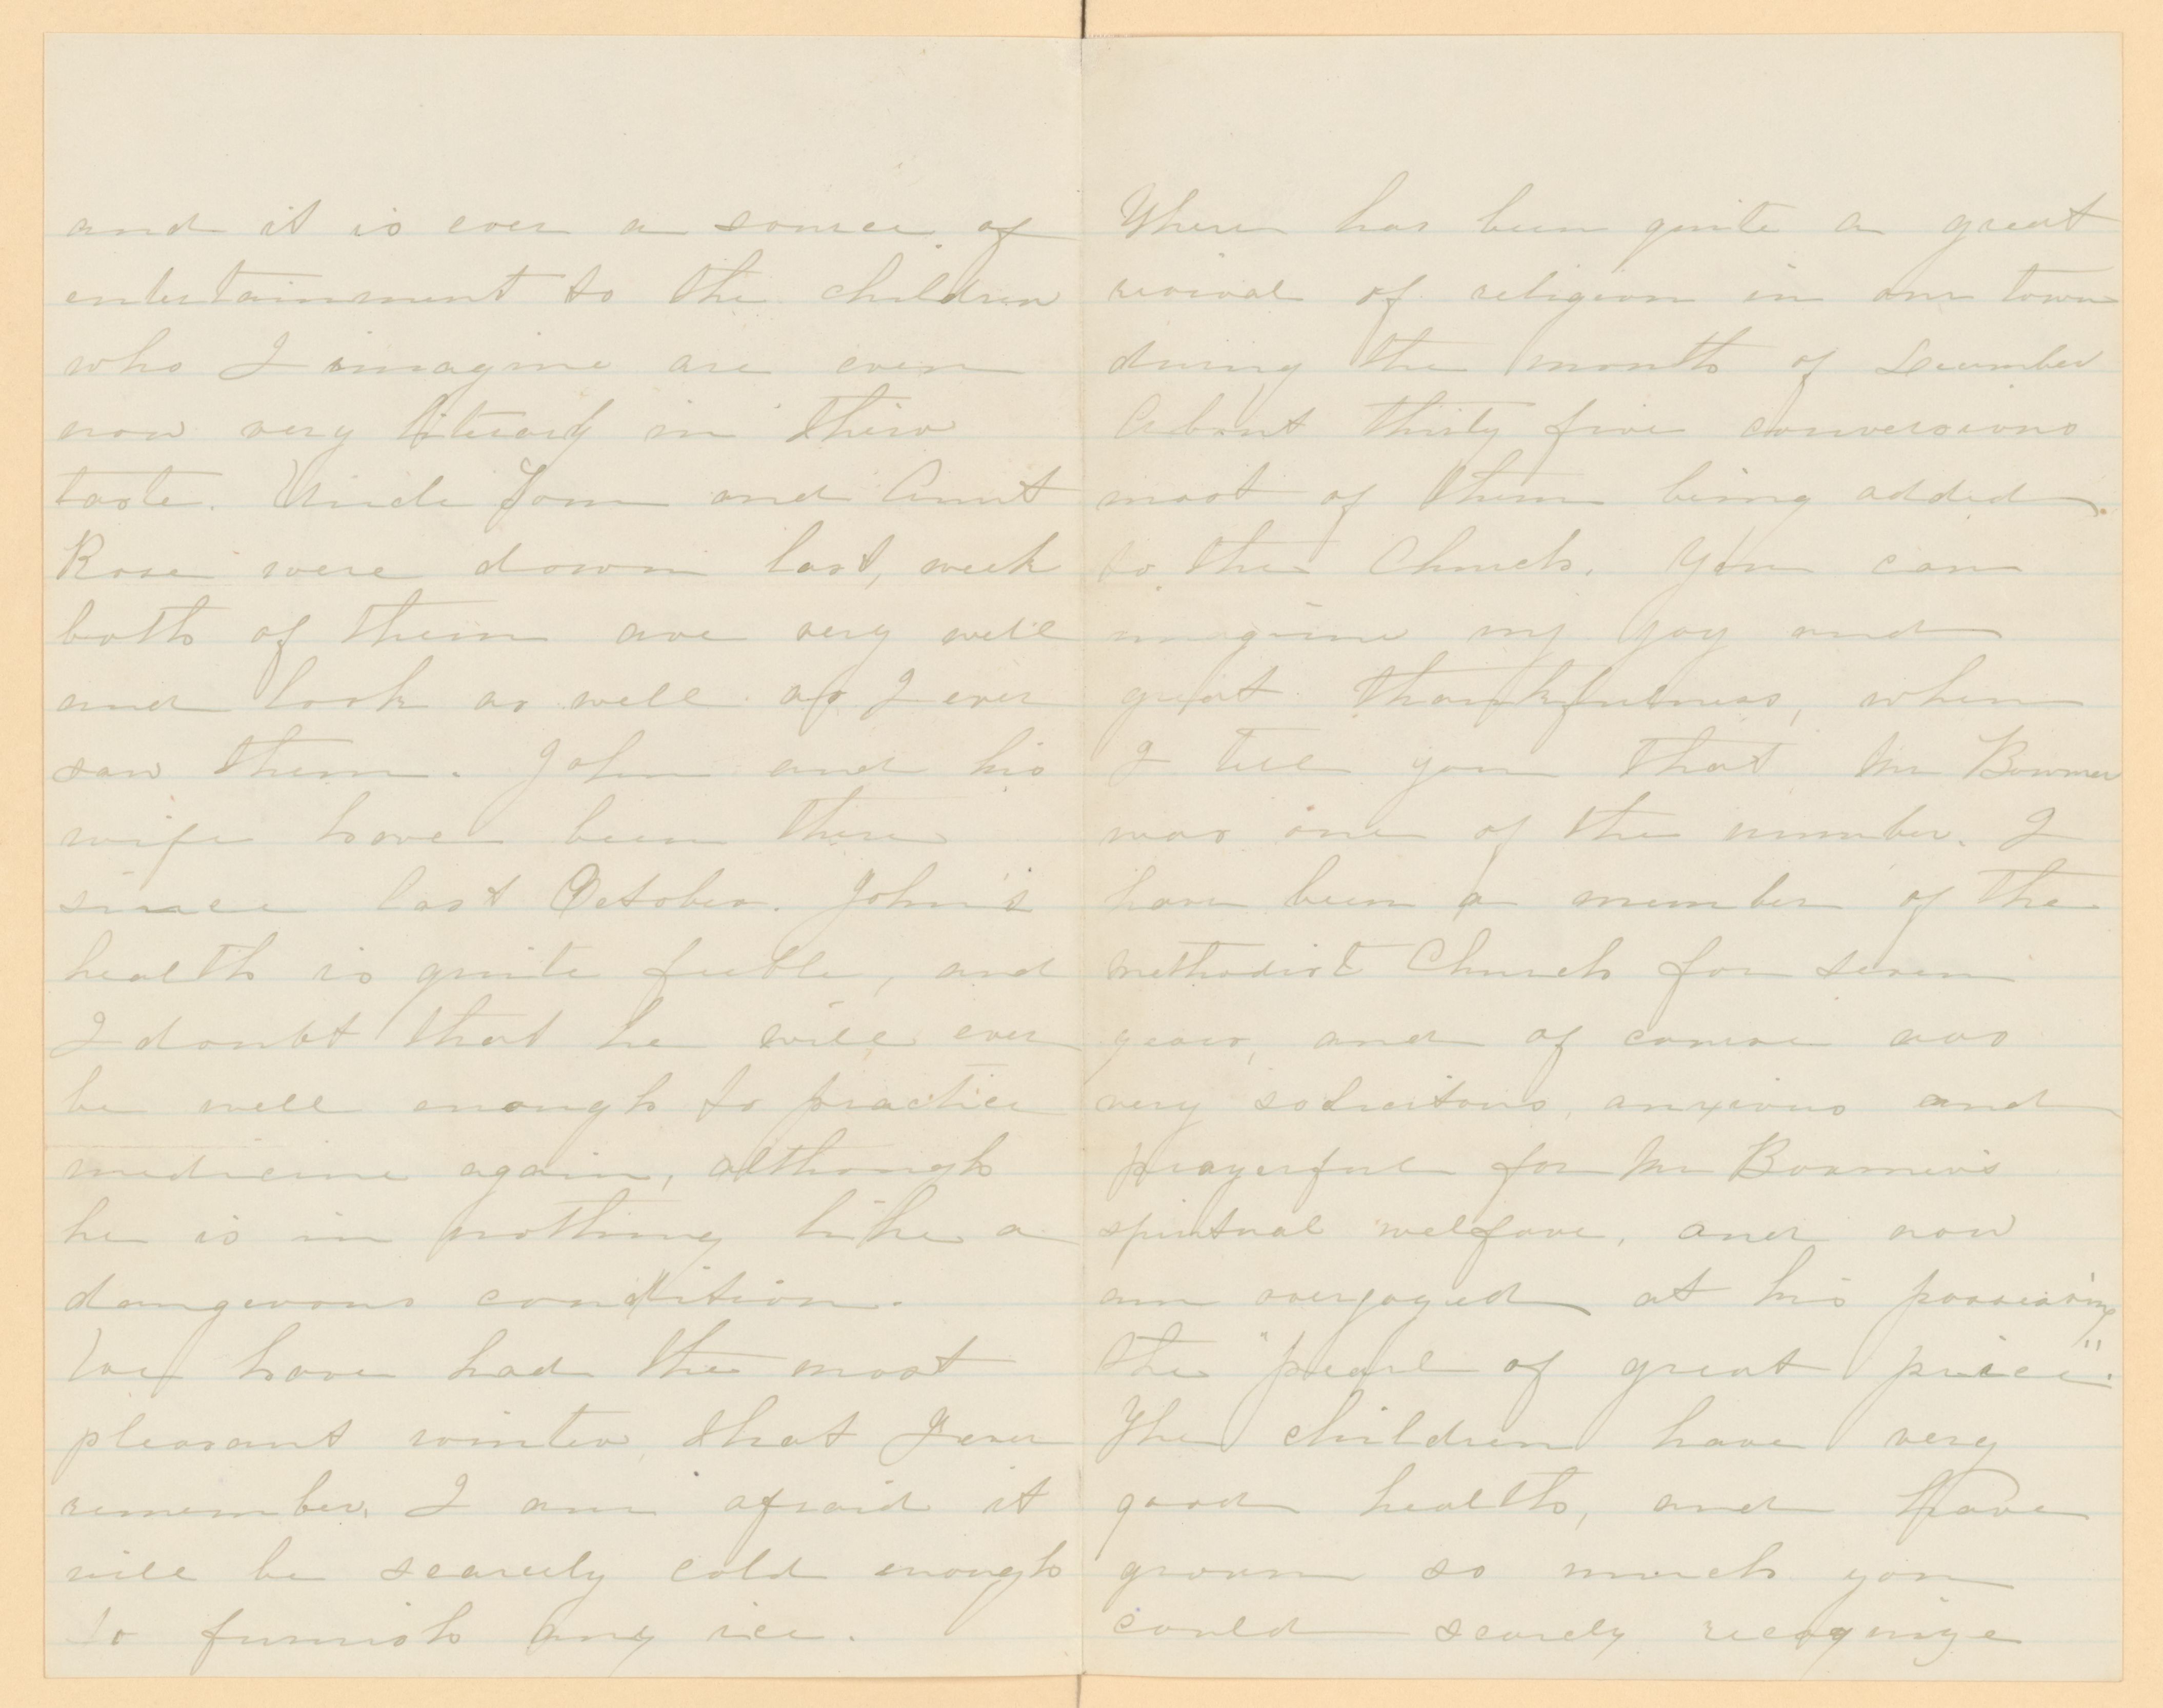 and it is ever a source of
entertainment to the children
who I imagine are even
now very literary in their
taste. Uncle Tom and Aunt
Rose were down last, week
both of them are very well
and look as well as I ever
saw them. John and his
wife have been there
since last October. John's
health is quite feeble, and
I doubt that he will ever
be well enough to practice
medicine again, although
he is in nothing like a
dangerous condition.
We have had the most
pleasant winter, that I ever
remember, I am afraid it
will be scarcely cold enough
to furnish any ice.
There has been quite a great
revival of religion in our town
during the month of December
About thirty five conversions
most of them being added
to the Church. You can
imagine my joy and
great thankfulness, when
I tell you that Mr Bowmer
was one of the number. I
have been a member of the
Methodist Church for seven
years, and of course was
very solicitous, anxious and
prayerful for Mr Bowmer's
spiritual welfare, and now
am overjoyed at his possessing
the "pearl of great price".
The children have very
good health, and have
grown so much you
could scarcely recognize